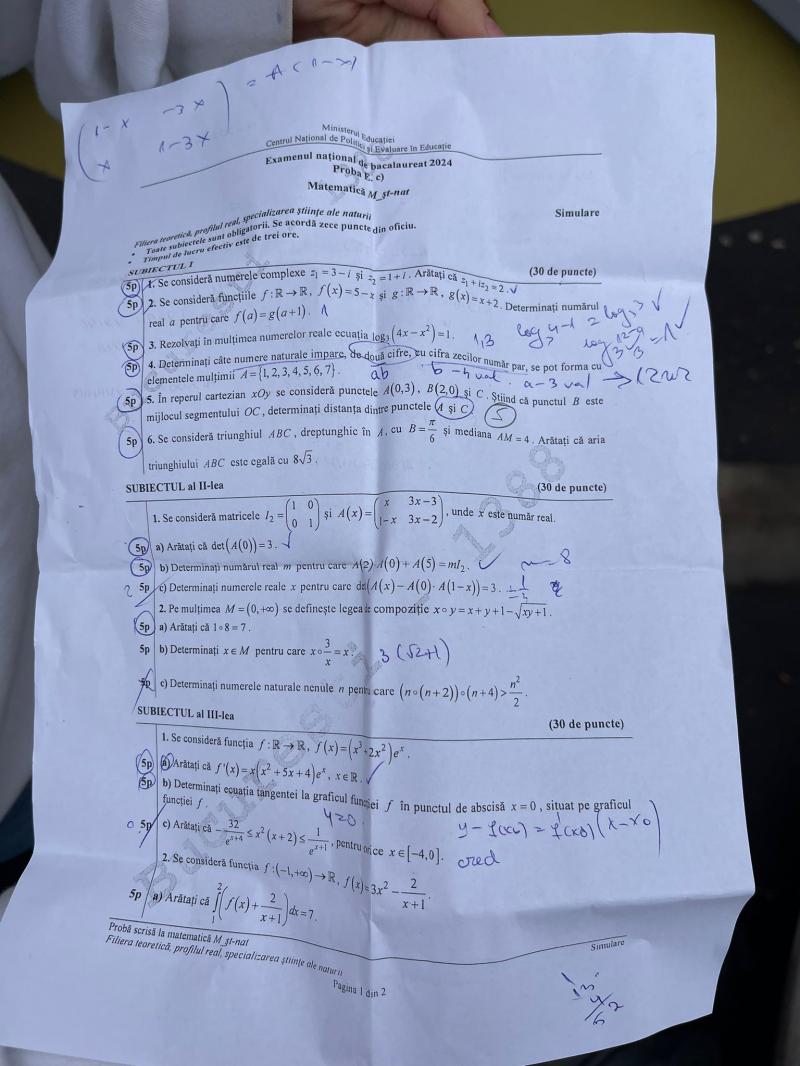 1-x -3x = A(1-x)
x 1-3x
Ministerul Educației
Centrul Național de Politici și Evaluare în Educație
Examenul național de bacalaureat 2024
Proba E. c)
Matematică M_șt-nat
Simulare
Filiera teoretică, profilul real, specializarea științe ale naturii
• Toate subiectele sunt obligatorii. Se acordă zece puncte din oficiu.
• Timpul de lucru efectiv este de trei ore.
SUBIECTUL I (30 de puncte)
5p 1. Se consideră numerele complexe z₁ = 3 − i și z₂ = 1 + i. Arătați că z₁ + iz₂ = 2.
5p 2. Se consideră funcțiile f : ℝ → ℝ, f(x) = 5 − x și g : ℝ → ℝ, g(x) = x + 2. Determinați numărul
real a pentru care f(a) = g(a + 1). 1
5p 3. Rezolvați în mulțimea numerelor reale ecuația log₃(4x − x²) = 1. 1,3
5p 4. Determinați câte numere naturale impare, de două cifre, cu cifra zecilor număr par, se pot forma cu
elementele mulțimii A = {1, 2, 3, 4, 5, 6, 7}. ab b-4 val. a-3 val → 12 nr
5p 5. În reperul cartezian xOy se consideră punctele A(0,3), B(2,0) și C. Știind că punctul B este
mijlocul segmentului OC, determinați distanța dintre punctele A și C. 5
5p 6. Se consideră triunghiul ABC, dreptunghic în A, cu B = π/6 și mediana AM = 4. Arătați că aria
triunghiului ABC este egală cu 8√3.
SUBIECTUL al II-lea (30 de puncte)
1. Se consideră matricele I₂ = (1 0; 0 1) și A(x) = (x 3x−3; 1−x 3x−2), unde x este număr real.
5p a) Arătați că det(A(0)) = 3.
5p b) Determinați numărul real m pentru care A(2)·A(0) + A(5) = mI₂. m=8
5p c) Determinați numerele reale x pentru care det(A(x) − A(0)·A(1−x)) = 3.
2. Pe mulțimea M = (0, +∞) se definește legea de compoziție x∘y = x + y + 1 − √(xy+1).
5p a) Arătați că 1∘8 = 7.
5p b) Determinați x ∈ M pentru care x∘3/x = x. 3(√2+1)
5p c) Determinați numerele naturale nenule n pentru care (n∘(n+2))∘(n+4) > n²/2.
SUBIECTUL al III-lea (30 de puncte)
1. Se consideră funcția f : ℝ → ℝ, f(x) = (x³ + 2x²)eˣ.
5p a) Arătați că f'(x) = x(x² + 5x + 4)eˣ, x ∈ ℝ.
5p b) Determinați ecuația tangentei la graficul funcției f în punctul de abscisă x = 0, situat pe graficul
funcției f. y=0 y-f(x0)=f(x0)(x-x0)
5p c) Arătați că −32/eˣ⁺⁴ ≤ x²(x+2) ≤ 1/eˣ⁺¹, pentru orice x ∈ [−4,0]. cred
2. Se consideră funcția f : (−1, +∞) → ℝ, f(x) = 3x² − 2/(x+1).
5p a) Arătați că ∫₁²(f(x) + 2/(x+1))dx = 7.
Probă scrisă la matematică M_șt-nat
Simulare
Filiera teoretică, profilul real, specializarea științe ale naturii
Pagina 1 din 2